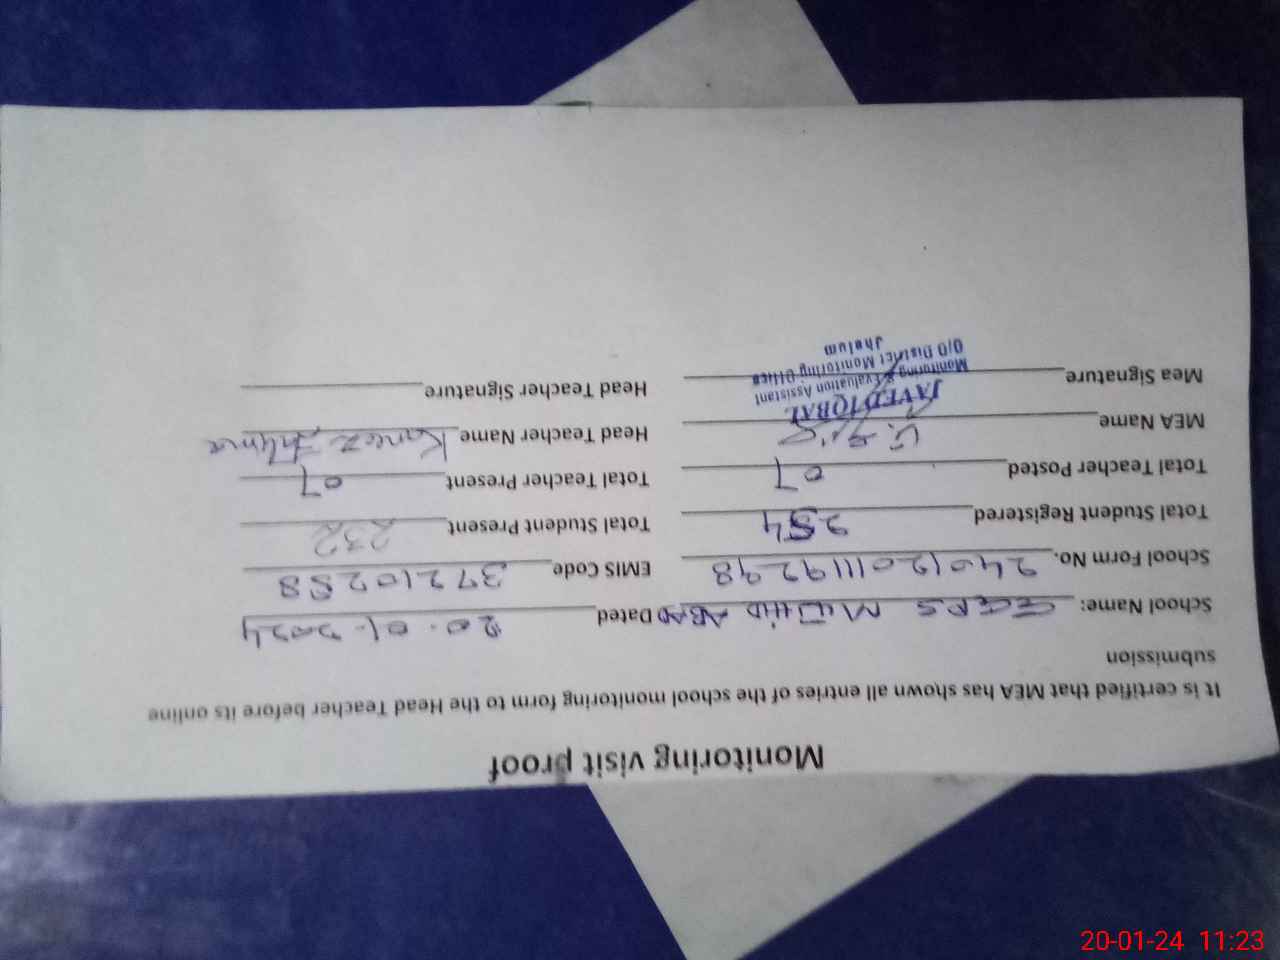 Monitoring visit proof
It is certified that MEA has shown all entries of the school monitoring form to the Head Teacher before its online
submission
School Name: GGPS MUJHID ABAD Dated 20.01.2024
School Form No. 2401201119298 EMIS Code 37210258
Total Student Registered 254 Total Student Present 232
Total Teacher Posted 07 Total Teacher Present 07
MEA Name Head Teacher Name Kaneez Fatima
JAVED IQBAL
Mea Signature Head Teacher Signature
Monitoring & Evaluation Assistant
O/O District Monitoring Office
Jhelum
20-01-24 11:23